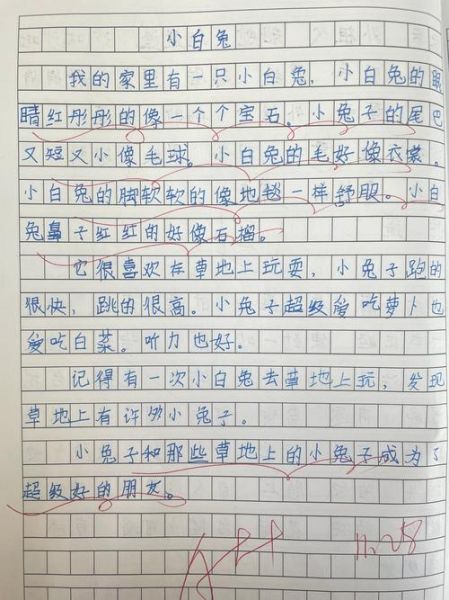 小白兔
我的家里有一只小白兔，小白兔的眼
睛红彤彤的像一个个宝石。小兔子的尾巴
又短又小像毛球。小白兔的毛好像衣裳。
小白兔的脚软软的像地毯一样舒服。小白
兔鼻子红红的好像石榴。
它很喜欢在草地上玩耍，小兔子跑的
很快，跳的很高。小兔子超级爱吃萝卜也
爱吃白菜。听力也好。
记得有一次小白兔去草地上玩，发现
草地上有许多小兔子。
小兔子和那些草地上的小兔子成为了
超级好的朋友。
A++ 11.28